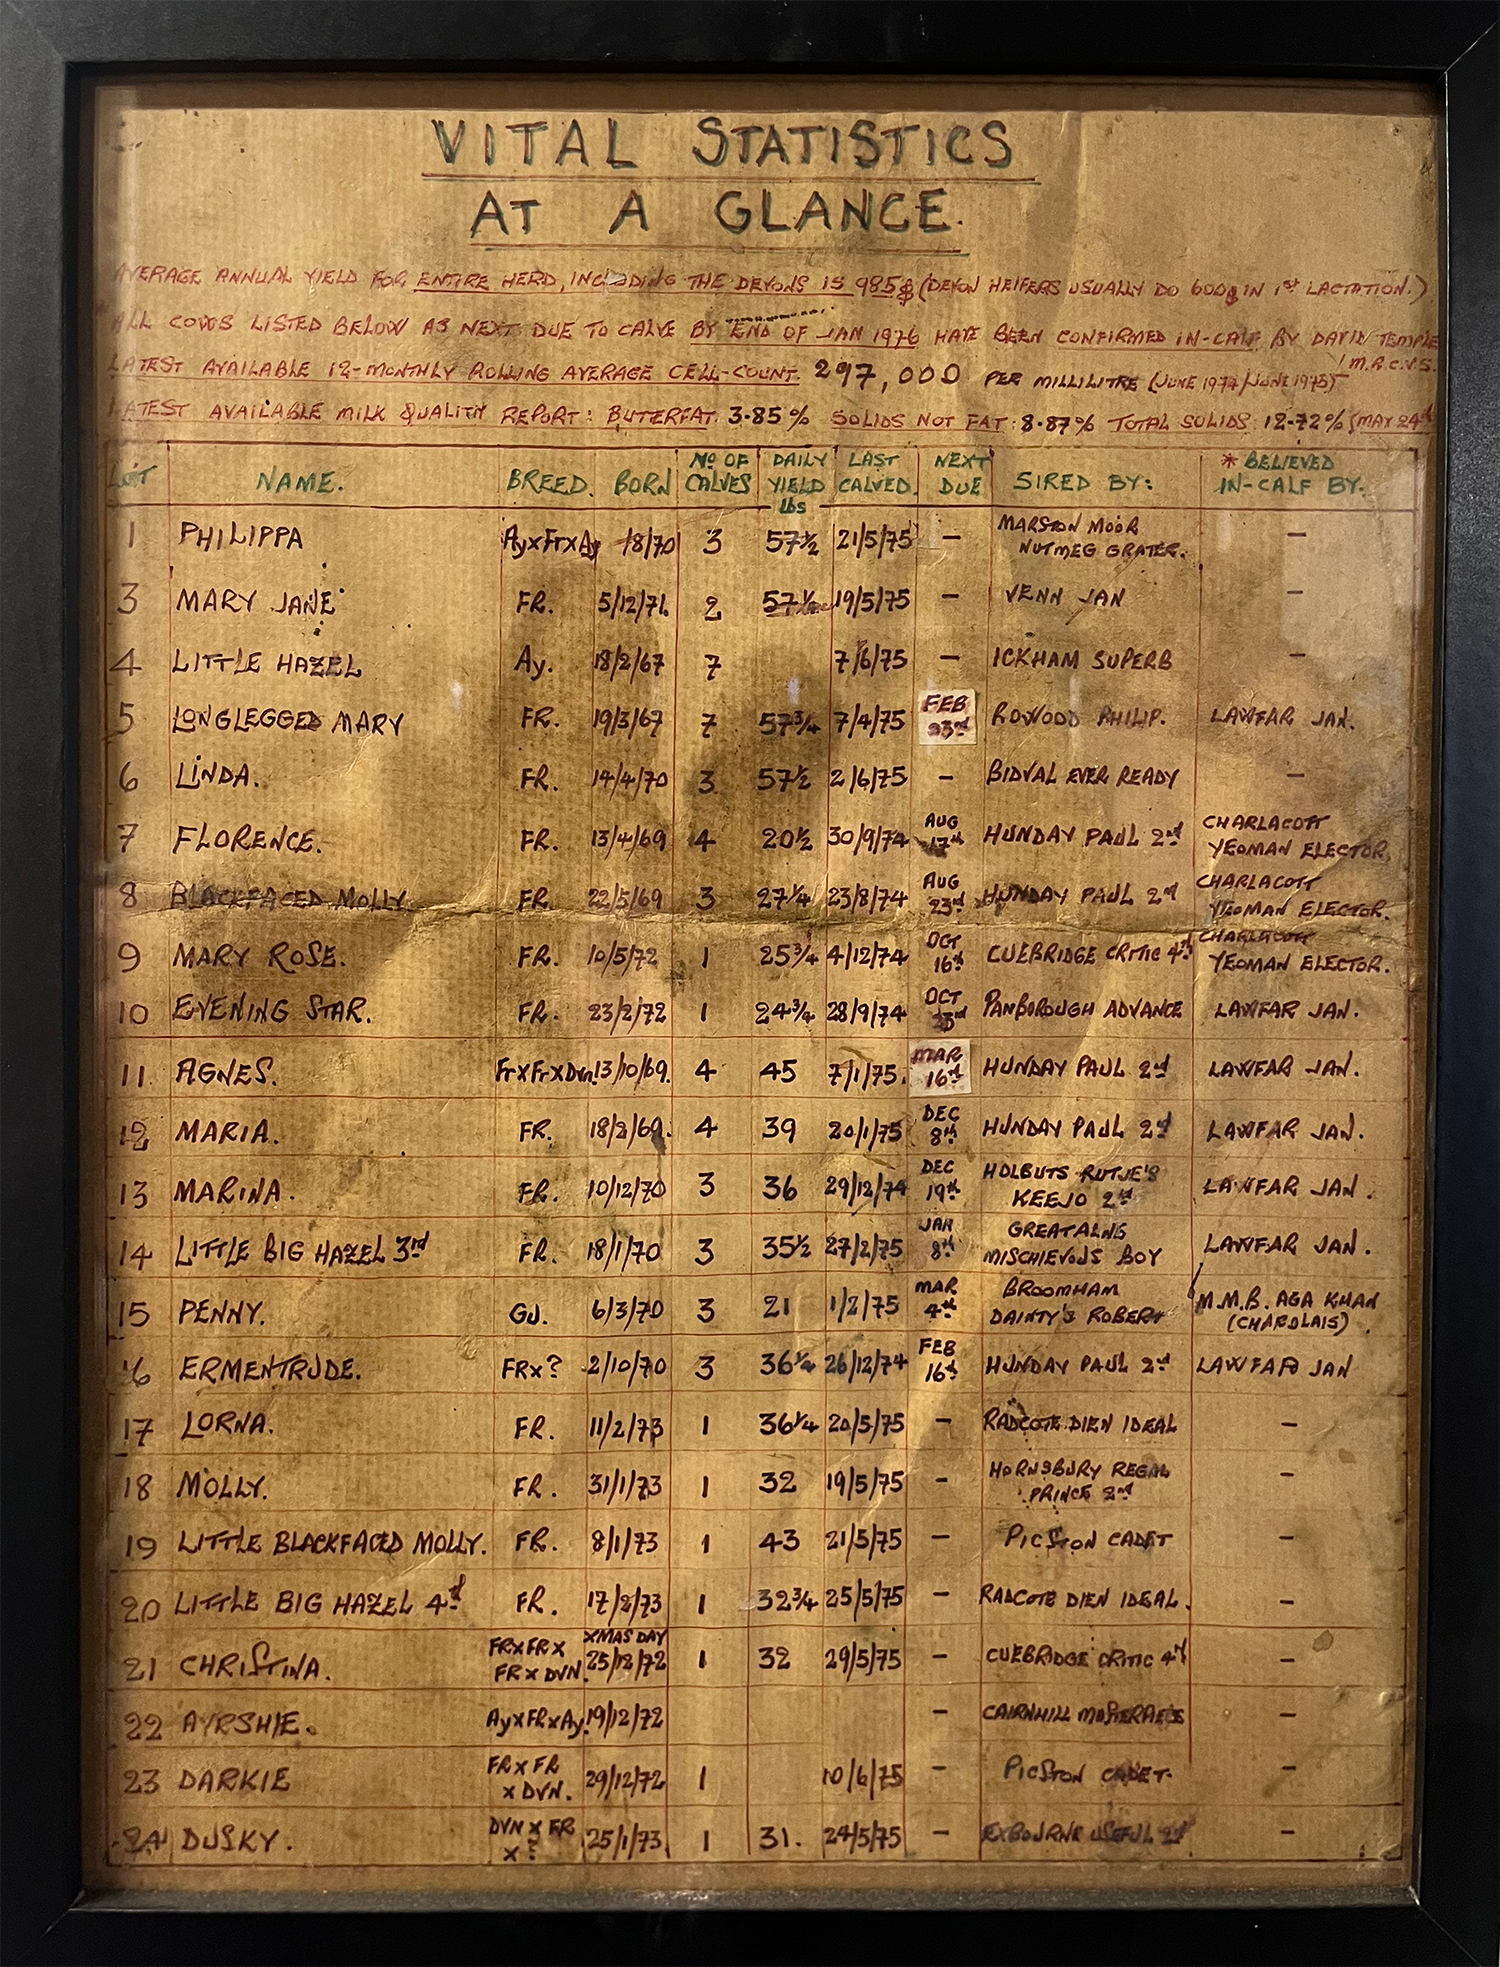 VITAL STATISTICS
AT A GLANCE.
AVERAGE ANNUAL YIELD FOR ENTIRE HERD, INCLUDING THE DEVONS IS 985g (DEVON HEIFERS USUALLY DO 600g IN 1st LACTATION.)
ALL COWS LISTED BELOW AS NEXT DUE TO CALVE BY END OF JAN 1976 HAVE BEEN CONFIRMED IN-CALF BY DAVID TEMPLE
M.R.C.V.S.
LATEST AVAILABLE 12-MONTHLY ROLLING AVERAGE CELL-COUNT. 297,000 PER MILLILITRE (JUNE 1974/JUNE 1975)
LATEST AVAILABLE MILK QUALITY REPORT: BUTERFAT. 3.85% SOLIDS NOT FAT: 8.87% TOTAL SOLIDS: 12.72% (MAY 24th
LOT NAME. BREED. BORN No OF CALVES DAILY YIELD lbs LAST CALVED. NEXT DUE SIRED BY: * BELIEVED IN-CALF BY:
1 PHILIPPA AyxFrxAy -/8/70 3 57½ 21/5/75 — MARSTON MOOR NUTMEG GRATER. —
3 MARY JANE FR. 5/12/71. 2 57½ 19/5/75 — VENN JAN —
4 LITTLE HAZEL Ay. 18/2/67 7 7/6/75 — ICKHAM SUPERB —
5 LONGLEGGED MARY FR. 19/3/67 7 57¾ 7/4/75 FEB 23rd ROWOOD PHILIP. LAWFAR JAN.
6 LINDA. FR. 14/4/70 3 57½ 2/6/75 — BIDVAL EVER READY —
7 FLORENCE. FR. 13/4/69 4 20½ 30/9/74 AUG 17th HUNDAY PAUL 2nd CHARLACOTT YEOMAN ELECTOR.
8 BLACKFACED MOLLY FR. 22/5/69 3 27¼ 23/8/74 AUG 23rd HUNDAY PAUL 2nd CHARLACOTT YEOMAN ELECTOR.
9 MARY ROSE. FR. 10/5/72 1 25¾ 4/12/74 OCT 16th CUEBRIDGE CRITIC 4th CHARLACOTT YEOMAN ELECTOR.
10 EVENING STAR. FR. 23/2/72 1 24¾ 28/9/74 OCT 23rd PANBOROUGH ADVANCE LAWFAR JAN.
11 AGNES. FrxFrxDvn. 13/10/69. 4 45 7/1/75. MAR 16th HUNDAY PAUL 2nd LAWFAR JAN.
12 MARIA. FR. 18/2/69. 4 39 20/1/75 DEC 8th HUNDAY PAUL 2nd LAWFAR JAN.
13 MARINA. FR. 10/12/70 3 36 29/12/74 DEC 19th HOLBUTS RUTJE'S KEEJO 2nd LAWFAR JAN.
14 LITTLE BIG HAZEL 3rd FR. 18/1/70 3 35½ 27/2/75 JAN 8th GREATALNG MISCHIEVOUS BOY LAWFAR JAN.
15 PENNY. GJ. 6/3/70 3 21 1/2/75 MAR 4th BROOMHAM DAINTY'S ROBERT M.M.B. AGA KHAN (CHAROLAIS).
16 ERMENTRUDE. FRx? 2/10/70 3 36¼ 26/12/74 FEB 16th HUNDAY PAUL 2nd LAWFAR JAN
17 LORNA. FR. 11/2/73 1 36¼ 20/5/75 — RADCOTE DIEN IDEAL —
18 MOLLY. FR. 31/1/73 1 32 19/5/75 — HORNSBURY REGAL PRINCE 2nd —
19 LITTLE BLACKFACED MOLLY. FR. 8/1/73 1 43 21/5/75 — PICSTON CADET —
20 LITTLE BIG HAZEL 4th FR. 17/2/73 1 32¾ 25/5/75 — RADCOTE DIEN IDEAL. —
21 CHRISTINA. FRxFRx FRxDVN. XMAS DAY 25/12/72 1 32 29/5/75 — CUEBRIDGE CRITIC 4th —
22 AYRSHIE. AyxFRxAy. 19/12/72 — CAIRNHILL —
23 DARKIE FRxFR xDVN. 29/12/72 1 10/6/75 — PICSTON CADET. —
24 DUSKY. DVNxFR x? 25/1/73 1 31. 24/5/75 — EXBOURNE USEFUL 2nd —